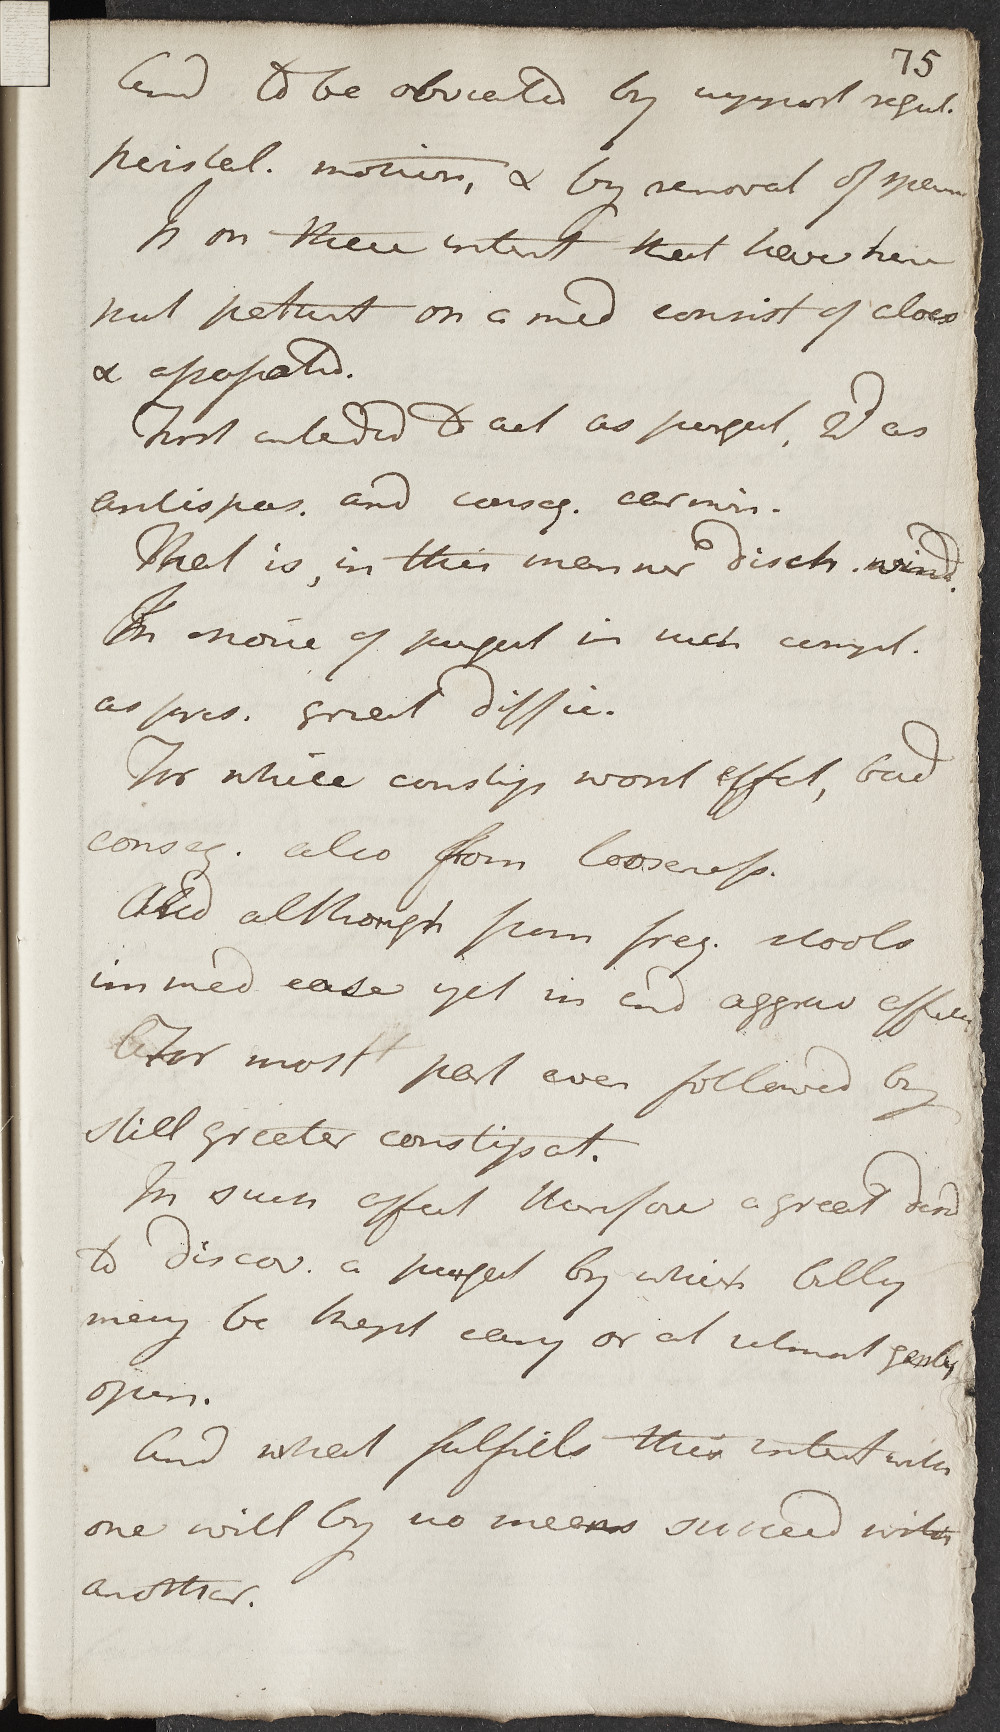 75
And to be obviated by support regul.
peristal. motion, & by removal of spasm
Is on these intent that have here
put patient on a med consist of aloes
& assafaetid.
First intended to act as purgat, 2d as
antispas. and conseq. carmin.
That is, in this manner disch. wind.
In choice of purgat in such compl.
as pres. great diffic.
For while constip worst effect, bad
conseq. also from looseness.
And although from freq. stools
immed ease yet in end aggrav effects
For most part even followed by
still greater constipat.
In such affect therefore a great desid
to discov. a purgat by which belly
may be kept easy or at utmost gently
open.
And what fulfills this intent with
one will by no means succeed with
another.